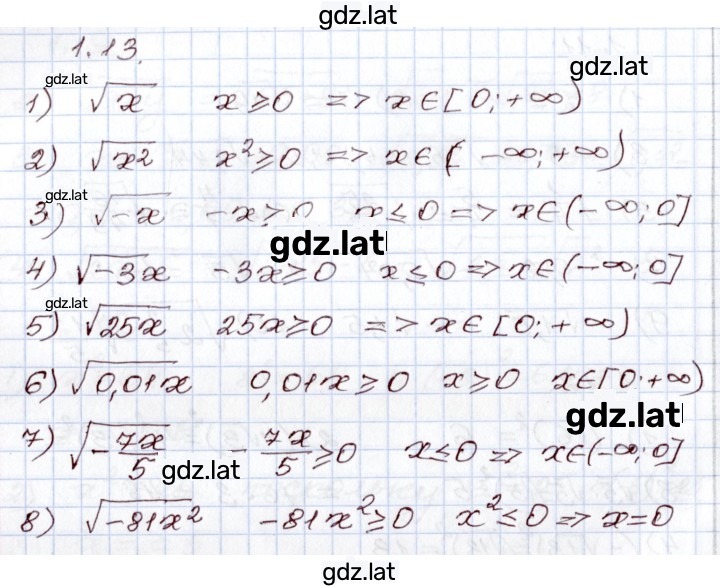 gdz.lat
1.13.
gdz.lat
gdz.lat
1) √x x ≥ 0 => x ∈ [0; +∞)
2) √x² x² ≥ 0 => x ∈ (-∞; +∞)
gdz.lat
3) √-x -x ≥ 0 x ≤ 0 => x ∈ (-∞; 0]
gdz.lat
4) √-3x -3x ≥ 0 x ≤ 0 => x ∈ (-∞; 0]
gdz.lat
5) √25x 25x ≥ 0 => x ∈ [0; +∞)
6) √0,01x 0,01x ≥ 0 x ≥ 0 x ∈ [0; +∞)
gdz.lat
7) √-7x/5 -7x/5 ≥ 0 x ≤ 0 => x ∈ (-∞; 0]
gdz.lat
8) √-81x² -81x² ≥ 0 x² ≤ 0 => x = 0
gdz.lat